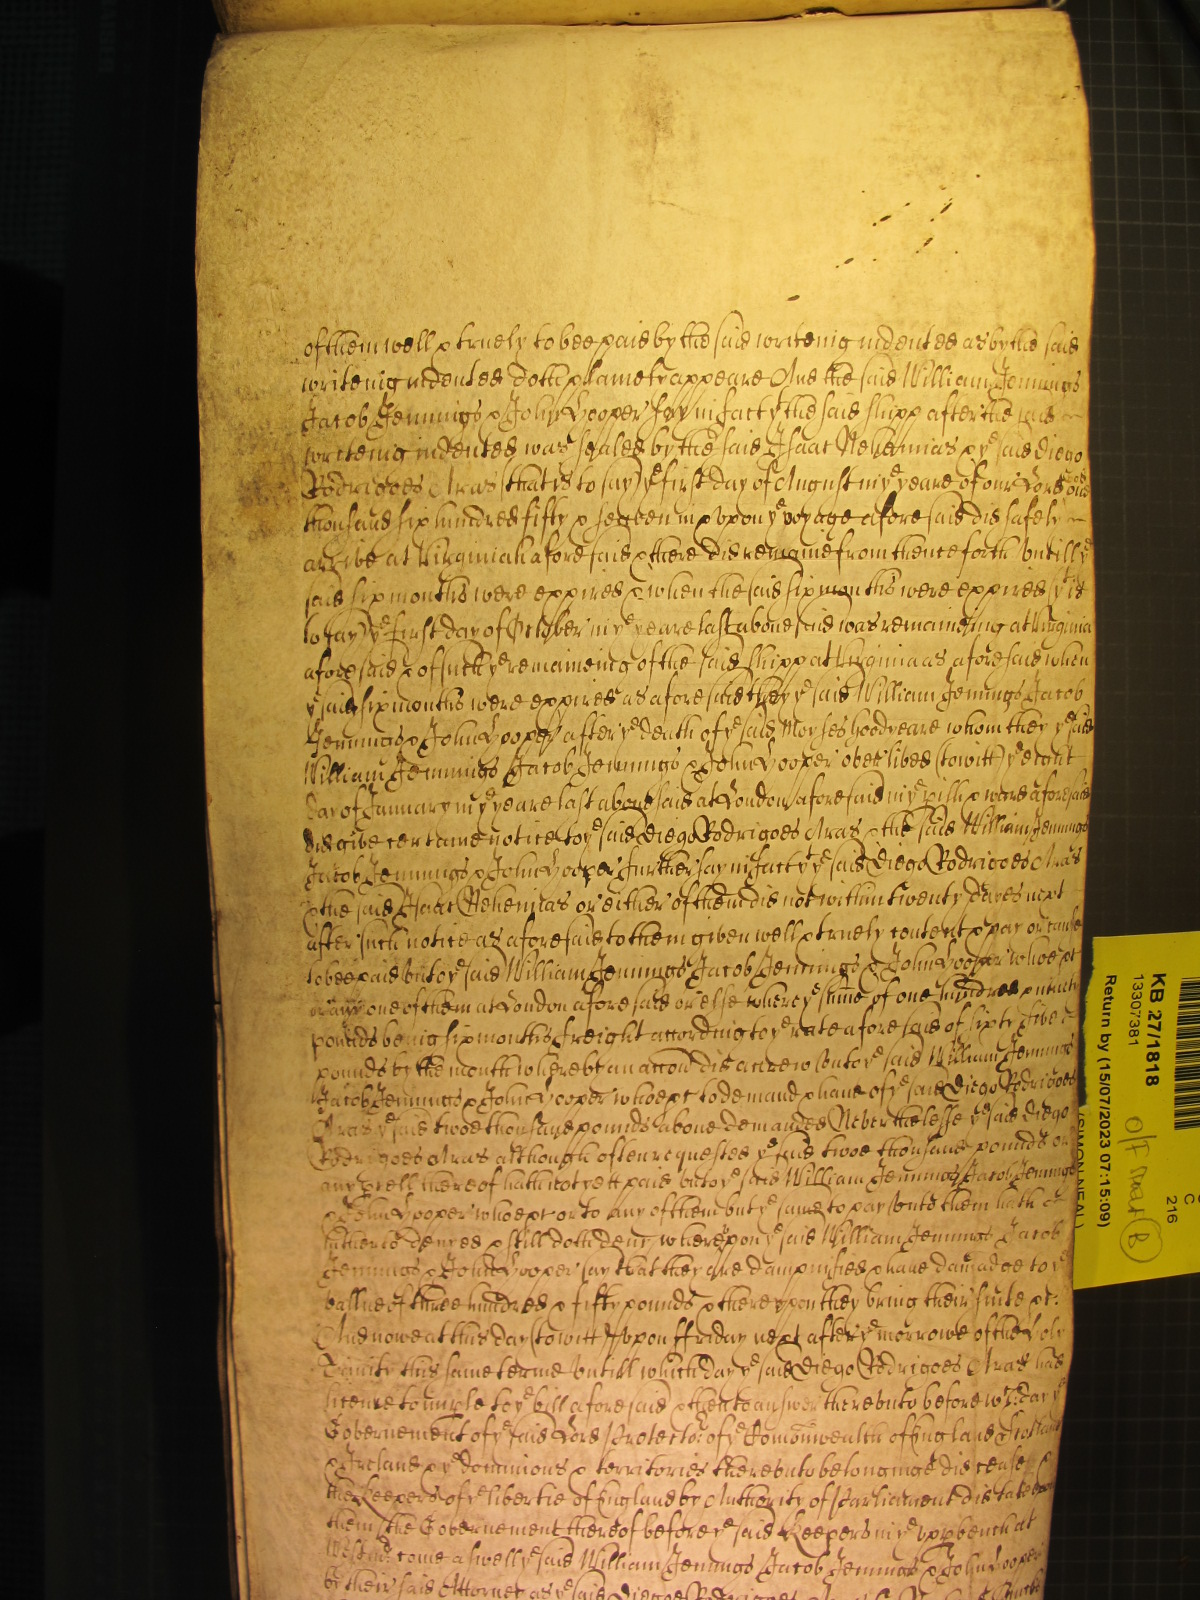 of them well & truely to bee paid by the said writeing indented as by the said
writeing indented doth plainely appeare And the said William Jennings
Jacob Jennings & John Cooper say in fact yt the said shipp after the said
writeing indented was sealed by the said Isaac Nehemias & ye said Diego
Rodrigoes Aras (that is to say) ye first day of August in ye yeare of our Lord one
thousand six hundred fifty & seaven in & upon ye voyage aforesaid did safely
arrive at Virginiah aforesaid & there did remaine from thenceforth untill ye
said six months were expired & when the said six months were expired (yt is
to say) ye first day of October in ye yeare last abovesaid was remaineing at Virginia
aforesaid & of such ye remaineing of the said shipp at Virginia as aforesaid when
ye said six months were expired as aforesaid they ye said William Jennings Jacob
Jennings & John Cooper after ye death of ye said Moyses Goodyeare whom they ye said
William Jennings Jacob Jennings & John Cooper over lived (to witt) ye eight
day of January in ye yeare last abovesaid at London aforesaid in ye pish & ward aforesaid
did give certaine notice to ye said Diego Rodrigoes Aras & the said William Jennings
Jacob Jennings & John Cooper further say in fact yt ye said Diego Rodrigoes Aras
& the said Isaac Nehemias or either of them did not within twenty dayes next
after such notice as aforesaid to them given well & truely content & pay or cause
to bee paid unto ye said William Jennings Jacob Jennings & John Cooper whoe pt
or any one of them at London aforesaid or else where ye summe of one hundred & ninety
pounds being six months freight according to ye rate aforesaid of sixty five
pounds by the month whereby an accon did accrew unto ye said William Jennings
Jacob Jennings & John Cooper whoe pt to demand & have of ye said Diego Rodrigoes
Aras ye said twoe thousand pounds above demanded Neverthelesse ye said Diego
Rodrigoes Aras although often requested ye said twoe thousand pounds or
any pcell thereof hath not yett paid unto ye said William Jennings Jacob Jennings
& John Cooper whoe pt or to any of them but ye same to pay unto them hath
hitherto denyed & still doth deny whereupon ye said William Jennings Jacob
Jennings & John Cooper say that they are dampnified & have damadge to ye
vallue of three hundred & fifty pounds & thereupon they bring their suite &c:
And nowe at this day (to witt) upon ffriday next after ye morrowe of the Holy
Trinity this same terme untill which day ye said Diego Rodrigoes Aras had
licence to imple to ye bill aforesaid & then to answer thereunto before wch day ye
Government of ye said Lord Protector of ye Comonwealth of England Scotland
& Ireland & ye dominions & territories thereunto belonginge did cease
the Keepers of ye libertie of England by Authority of Parliament did take
them the Government thereof before ye said Keepers in ye upp bench at
Westmr come aswell ye said William Jennings Jacob Jennings & John Cooper
by their said Attorney as ye said Diegoe Rodrigoes
KB 27/1818
13307381
Return by (15/07/2023 07:15:09)
(SIMON NEAL)
C
216
O/f Near
B